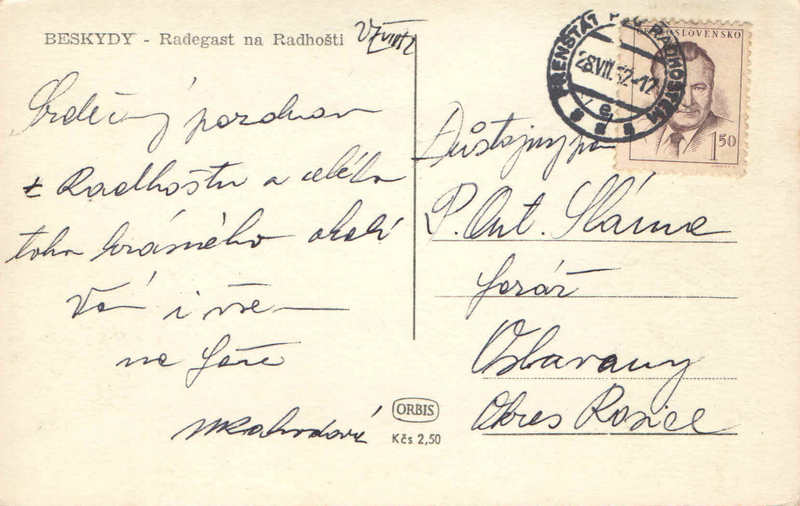 BESKYDY - Radegast na Radhošti
Srdečný pozdrav
z Radhoště a celého
toho krásného okolí
Vám i všem
na faře
ORBIS
Kčs 2,50
FRENŠTÁT POD RADHOŠTĚM
28.VII.52-12
e
SLOVENSKO
1 50
Důstojný pán
P. Ant. Sláma
farář
Oslavany
Okres Rosice